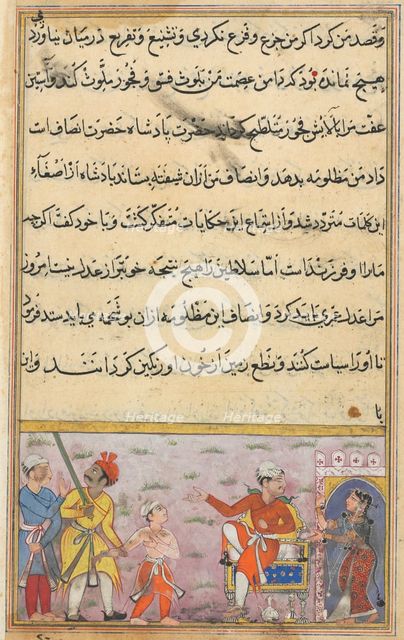 وقصد من کرد اکر من جزع و فزع نکردي و تشنیع و تفریع در میان نیاورد
هیچ نمانده بود که دامن عصمت من بلوث فسق و فجور ملوث کند و آستین
عفت مرا بالایش فجور متلطخ کرداند حضرت پادشاه حضرت انصاف است
داد من مظلومه بدهد و انصاف من از ان شیفته بستاند پادشاه از اصغاء
این کلمات متردد شد و از استماع این حکایات متفکر کشت و با خود کفت اکرچه
مارا او فرزند است اما سلاطین را هیچ نتیجه خوبتر از عدل نیست امروز
مرا عدل عمري باید کرد و انصاف این مظلومه ازان بو شحمه مي باید ستد فرمود
تا او را سیاست کنند و نطع زمین از خون او رنکین کردانند و این
با
Heritage
Heritage